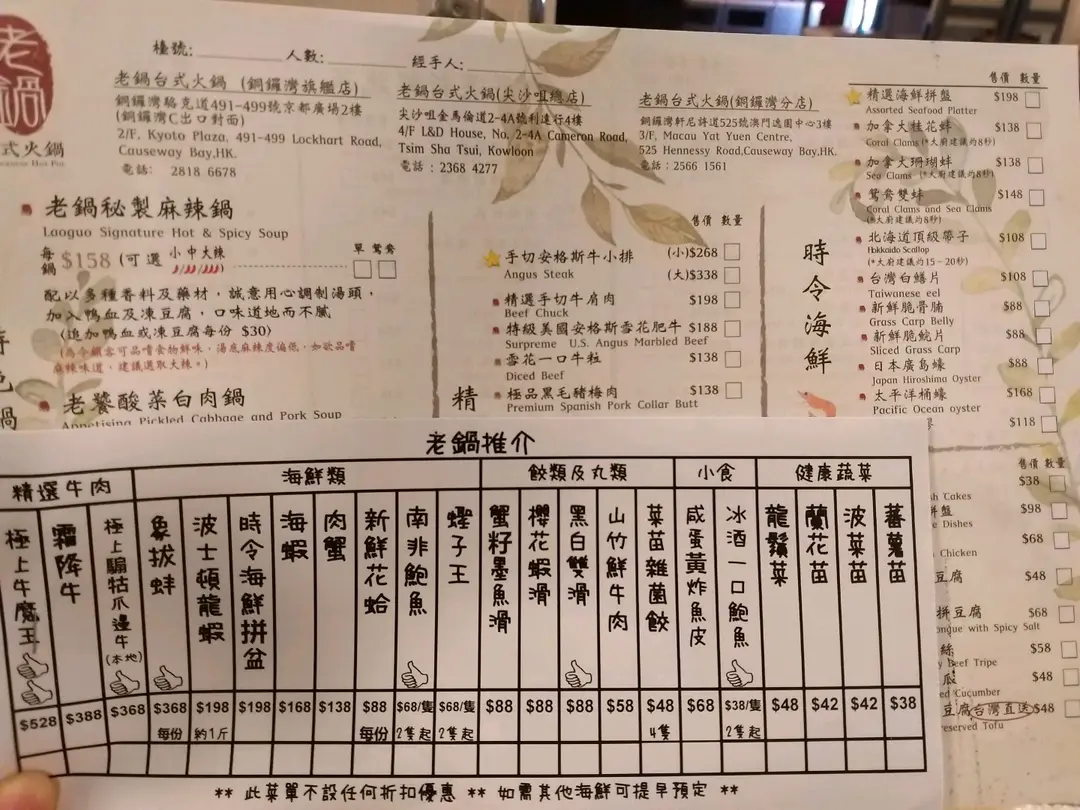 老鍋
式火鍋
檯號:
人數:
經手人:
老鍋台式火鍋 (銅鑼灣旗艦店)
銅鑼灣駱克道491-499號京都廣場2樓
(銅鑼灣C出口對面)
2/F, Kyoto Plaza, 491-499 Lockhart Road,
Causeway Bay,HK.
電話: 2818 6678
老鍋台式火鍋(尖沙咀總店)
尖沙咀金馬倫道2-4A號利達行4樓
4/F L&D House, No. 2-4A Cameron Road,
Tsim Sha Tsui, Kowloon
電話 : 2368 4277
老鍋台式火鍋(銅鑼灣分店)
銅鑼灣軒尼詩道525號澳門逸園中心3樓
3/F, Macau Yat Yuen Centre,
525 Hennessy Road,Causeway Bay,HK.
電話 : 2566 1561
老鍋秘製麻辣鍋
Laoguo Signature Hot & Spicy Soup
每鍋 $158 (可選 小中大辣) 單 鴛鴦
配以多種香料及藥材，誠意用心調制湯頭，
加入鴨血及凍豆腐，口味道地而不膩
(追加鴨血或凍豆腐每份 $30)
(為令顧客可品嚐食物鮮味，湯底麻辣度偏低，如欲品嚐
麻辣味道，建議選取大辣。)
老饕酸菜白肉鍋
Appetising Pickled Cabbage and Pork Soup
精
售價 數量
手切安格斯牛小排 (小)$268
Angus Steak (大)$338
精選手切牛肩肉 $198
Beef Chuck
特級美國安格斯雪花肥牛 $188
Surpreme U.S. Angus Marbled Beef
雪花一口牛粒 $138
Diced Beef
極品黑毛豬梅肉 $138
Premium Spanish Pork Collar Butt
時令海鮮
售價 數量
精選海鮮拼盤 $198
Assorted Seafood Platter
加拿大桂花蚌 $138
Coral Clams (*大廚建議灼8秒)
加拿大珊瑚蚌 $138
Sea Clams (*大廚建議灼8秒)
鴛鴦雙蚌 $148
Coral Clams and Sea Clams
(*大廚建議灼8秒)
北海道頂級帶子 $108
Hokkaido Scallop
(*大廚建議灼15-20秒)
台灣白鱔片 $108
Taiwanese eel
新鮮脆骨腩 $88
Grass Carp Belly
新鮮脆鯇片 $88
Sliced Grass Carp
日本廣島蠔 $88
Japan Hiroshima Oyster
太平洋桶蠔 $168
Pacific Ocean oyster
$118
售價 數量
$38
sh Cakes
拼盤 $98
e Dishes
$68
Chicken
豆腐 $48
拼豆腐 $68
ongue with Spicy Salt
絲 $58
y Beef Tripe
瓜 $48
ed Cucumber
豆腐 台灣直送 $48
reserved Tofu
老鍋推介
精選牛肉
海鮮類
餃類及丸類
小食
健康蔬菜
極上牛魔王 $528
霜降牛 $388
極上騸牯爪邊牛(本地) $368
象拔蚌 $368 每份
波士頓龍蝦 $198 約1斤
時令海鮮拼盆 $198
海蝦 $168
肉蟹 $138
新鮮花蛤 $88 每份
南非鮑魚 $68/隻 2隻起
蟶子王 $68/隻 2隻起
蟹籽墨魚滑 $88
櫻花蝦滑 $88
黑白雙滑 $88
山竹鮮牛肉 $58
菜苗雜菌餃 $48 4隻
咸蛋黃炸魚皮 $68
冰酒一口鮑魚 $38/隻 2隻起
龍鬚菜 $48
蘭花苗 $42
菠菜苗 $42
蕃薯苗 $38
** 此菜單不設任何折扣優惠 ** 如需其他海鮮可提早預定 **